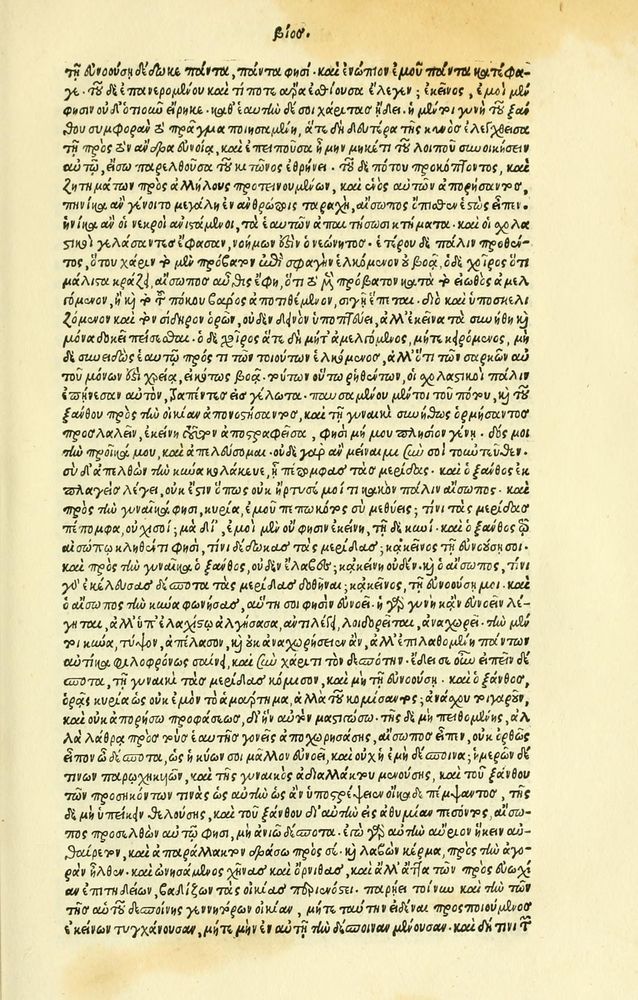 βίος.
τῇ εὐνοούσῃ δέδωκε πάντα, πάντα φησί. καὶ ἐνώπιον ἐμοῦ πάντα κατέφα-
γε. τοῦ δὲ ἐπανερομένου καὶ τί ποτε ἄρα ἐσθίουσα ἔλεγεν; ἐκεῖνος, ἐμοὶ μὲν
φησὶν οὐδ' ὁτιοῦν εἴρηκε. καθ' ἑαυτὴν δέ σοι χάριτας ᾔδει. ἡ μέντοι γυνὴ τοῦ ξάν
θου συμφορὰν τὸ πρᾶγμα ποιησαμένη, ἅτε δὴ δευτέρα τῆς κυνὸς ἐλεγχθεῖσα
τῇ πρὸς τὸν ἄνδρα εὐνοίᾳ, καὶ ἐπειποῦσα ἦ μὴν μηκέτι τοῦ λοιποῦ συνοικήσειν
αὐτῷ, εἴσω παρελθοῦσα τοῦ κοιτῶνος ἐθρήνει. τοῦ δὲ πότου προκόπτοντος, καὶ
ζητημάτων πρὸς ἀλλήλους προτεινομένων, καὶ ἑνὸς αὐτῶν ἀπορήσαντος,
πηνίκα ἂν γένοιτο μεγάλη ἐν ἀνθρώποις ταραχή, αἴσωπος ὄπισθεν ἑστὼς εἶπεν.
ἡνίκα ἂν οἱ νεκροὶ ἀνιστάμενοι, τὰ ἑαυτῶν ἀπαιτήσωσι κτήματα. καὶ οἱ σχολα
στικοὶ γελάσαντες ἔφασαν, νοήμων ἐστὶν ὁ νεώνητος. ἑτέρου δὲ πάλιν προθέν-
τος, ὅτου χάριν τὸ μὲν πρόβατον ἐπὶ σφαγὴν ἑλκόμενον οὐ βοᾷ, ὁ δὲ χοῖρος ὅτι
μάλιστα κράζει, αἴσωπος αὖθις ἔφη, ὅτι τὸ μὲν πρόβατον κατὰ τὸ εἰωθὸς ἀμελ
γόμενον, ἢ καὶ τὸ τοῦ πόκου βάρος ἀποτιθέμενον, σιγῇ ἕπεται. διὸ καὶ ὑποσκελι
ζόμενον καὶ τὸν σίδηρον ὁρῶν, οὐδὲν δεινὸν ὑποπτεύει, ἀλλ' ἐκεῖνα τὰ συνήθη καὶ
μόνα δοκεῖ πείσεσθαι. ὁ δὲ χοῖρος ἅτε δὴ μήτ' ἀμελγόμενος, μήτε κειρόμενος, μη
δὲ συνειδὼς ἑαυτῷ πρός τι τῶν τοιούτων ἑλκόμενος, ἀλλ' ὅτι τῶν σαρκῶν αὐ
τοῦ μόνων ἐστὶ χρεία, εἰκότως βοᾷ. τούτων οὕτω ῥηθέντων, οἱ σχολαστικοὶ πάλιν
ἐπῄνεσαν αὐτόν, τραπέντες εἰς γέλωτα. παυσαμένου μέντοι τοῦ πότου, καὶ τοῦ
ξάνθου πρὸς τὴν οἰκίαν ἀπονοστήσαντος, καὶ τῇ γυναικὶ συνήθως ὁρμήσαντος
προσλαλεῖν, ἐκείνη τοῦτον ἀποστραφεῖσα, φησὶ μή μου πλησίον γένῃ. δός μοι
τὴν προῖκά μου, καὶ ἀπελεύσομαι. οὐδὲ γὰρ ἂν μείναιμι σὺν σοὶ τοῦ λοιποῦ.
σὺ δ' ἀπελθὼν τὴν κύνα κολάκευε, ᾗ πέπομφας τὰς μερίδας. καὶ ὁ ξάνθος ἐκ
πλαγεὶς λέγει, οὐκ ἔστιν ὅπως οὐκ ἤρτυσέ μοί τι κακὸν πάλιν αἴσωπος. καὶ
πρὸς τὴν γυναῖκά φησι, κυρία, ἐμοῦ πεπωκότος σὺ μεθύεις; τίνι τὰς μερίδας
πέπομφα, οὐχί σοι; μὰ δί', ἐμοὶ μὲν οὔ φησιν ἐκείνη, τῇ δὲ κυνί. καὶ ὁ ξάνθος τῷ
αἰσώπῳ κληθέντι φησί, τίνι δέδωκας τὰς μερίδας; κἀκεῖνος τῇ εὐνοούσῃ σοι.
καὶ πρὸς τὴν γυναῖκα ὁ ξάνθος, οὐδὲν ἔλαβες; κἀκείνη οὐδέν. καὶ ὁ αἴσωπος, τίνι
γὰρ ἐκέλευσας δέσποτα τὰς μερίδας δοθῆναι; κἀκεῖνος, τῇ εὐνοούσῃ μοι. καὶ
ὁ αἴσωπος τὴν κύνα φωνήσας, αὕτη σοι φησὶν εὐνοεῖ. ἡ γὰρ γυνὴ κἂν εὐνοεῖν λέ-
γηται, ἀλλ' ὑπ' ἐλαχίστῳ ἀλγήσασα, ἀντιλέγει, λοιδορεῖται, ἀναχωρεῖ. τὴν μέν
τοι κύνα, τύψον, ἀπέλασον, καὶ οὐκ ἀναχωρήσειεν ἄν, ἀλλ' ἐπιλαθομένη πάντων
αὐτίκα φιλοφρόνως σαίνει, καὶ σὺν χάριτι τὸν δεσπότην. ἔδει σε οὖν εἰπεῖν δέ
σποτα, τῇ γυναικὶ τὰς μερίδας κόμισον, καὶ μὴ τῇ εὐνοούσῃ. καὶ ὁ ξάνθος,
ὁρᾷς κυρία ὡς οὐκ ἐμὸν τὸ ἁμάρτημα, ἀλλὰ τοῦ κομίσαντος; ἀνάσχου τοιγαροῦν,
καὶ οὐκ ἀπορήσω προφάσεως, δι' ἣν αὐτὸν μαστιγώσω. τῆς δὲ μὴ πειθομένης, ἀλ
λὰ λάθρᾳ πρὸς τοὺς ἑαυτῆς γονεῖς ἀποχωρησάσης, αἴσωπος εἶπεν, οὐκ ὀρθῶς
εἶπον ὦ δέσποτα, ὡς ἡ κύων σοι μᾶλλον εὐνοεῖ, καὶ οὐχ ἡ ἐμὴ δέσποινα; ἡμερῶν δέ
τινων παρῳχηκυιῶν, καὶ τῆς γυναικὸς ἀδιαλλάκτου μενούσης, καὶ τοῦ ξάνθου
τῶν προσηκόντων τινὰς ὡς αὐτὴν ὡς ἂν ὑποστρέψειεν οἴκαδε πέμψαντος, τῆς
δὲ μὴ ὑπείκειν θελούσης, καὶ τοῦ ξάνθου δι' αὐτὴν εἰς ἀθυμίαν πεσόντος, αἴσω-
πος προσελθὼν αὐτῷ φησι, μὴ ἀνιῶ δέσποτα. ἐγὼ γὰρ αὐτὴν αὔριον ἥκειν αὐ-
θαίρετον, καὶ ἀπαράλλακτον δράσω πρὸς σέ. καὶ λαβὼν κέρμα, πρὸς τὴν ἀγο-
ρὰν ἦλθεν. καὶ ὠνησάμενος χῆνας καὶ ὄρνιθας, καὶ ἄλλ' ἄττα τῶν πρὸς εὐωχί
αν ἐπιτηδείων, βαδίζων τὰς οἰκίας περιενόστει. παρῄει τοίνυν καὶ τὴν τῶν
τῆς αὐτοῦ δεσποίνης γεννητόρων οἰκίαν, μήτε ταύτην εἰδέναι προσποιούμενος
ἐκείνων τυγχάνουσαν, μήτε μὴν ἐν αὐτῇ τὴν δέσποιναν μένουσαν. καὶ δή τινι τῶν